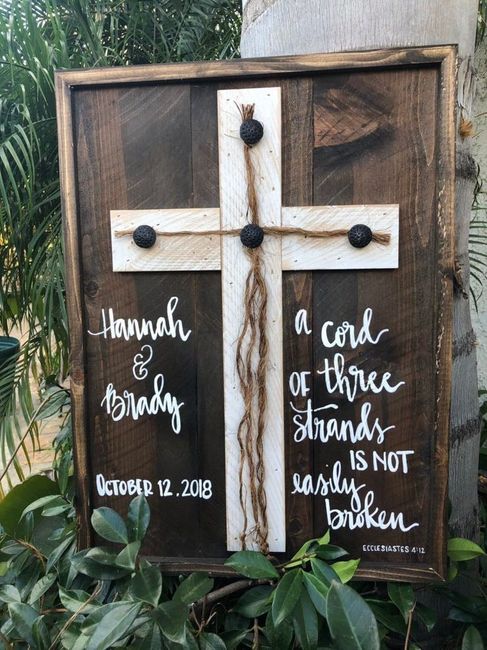 Hannah
&
Brady
OCTOBER 12.2018
a cord
OF three
strands
IS NOT
easily
broken
ECCLESIASTES 4:12